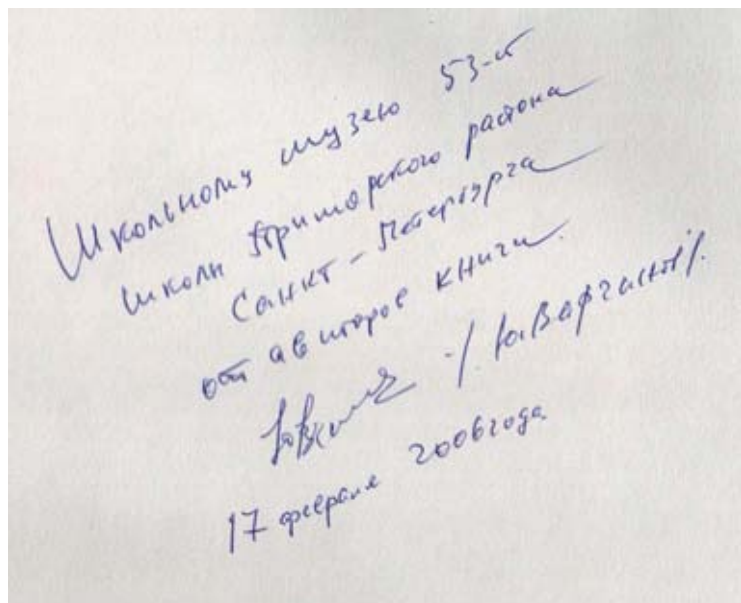 Школьному музею 53-й
школы Приморского района
Санкт-Петербурга
от авторов книги.
17 февраля 2006 года